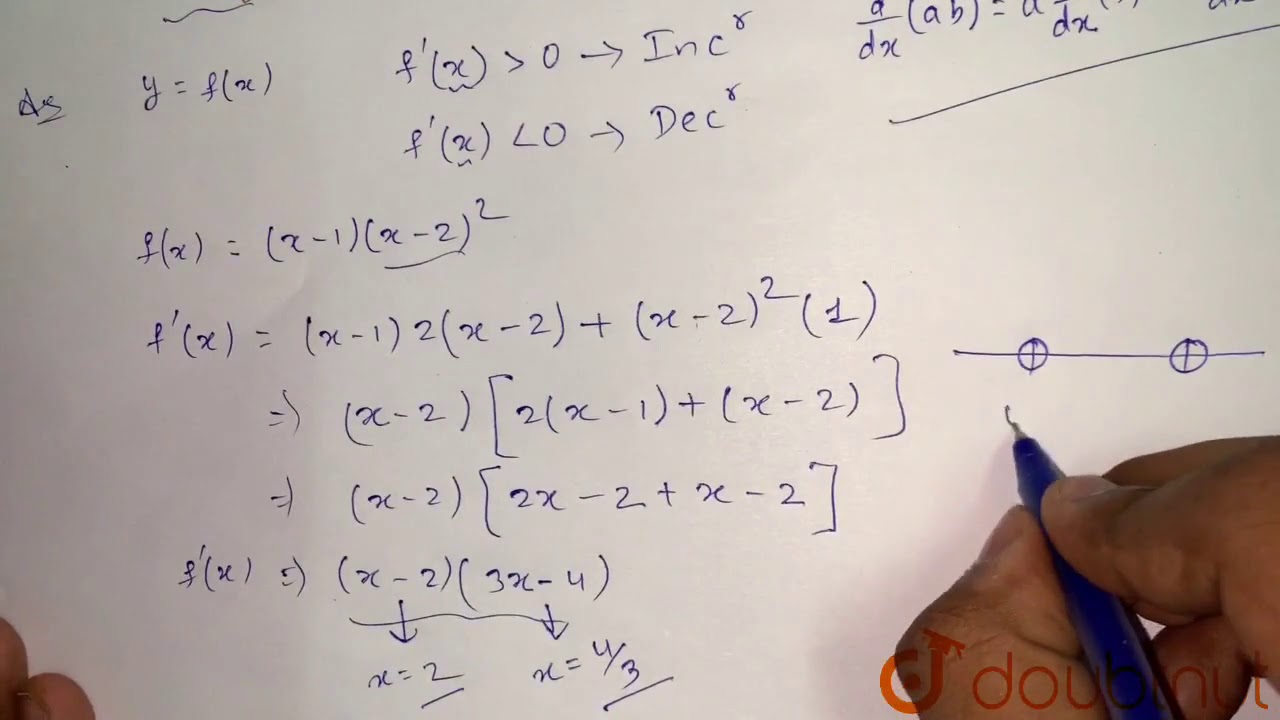 d/dx (ab) = a d/dx
Ans y = f(x)
f'(x) > 0 → Inc^r
f'(x) < 0 → Dec^r
f(x) = (x-1)(x-2)^2
f'(x) = (x-1) 2(x-2) + (x-2)^2 (1)
⇒ (x-2) [2(x-1) + (x-2)]
⇒ (x-2) [2x-2+x-2]
f'(x) ⇒ (x-2)(3x-4)
x = 2 x = 4/3
doubtnut